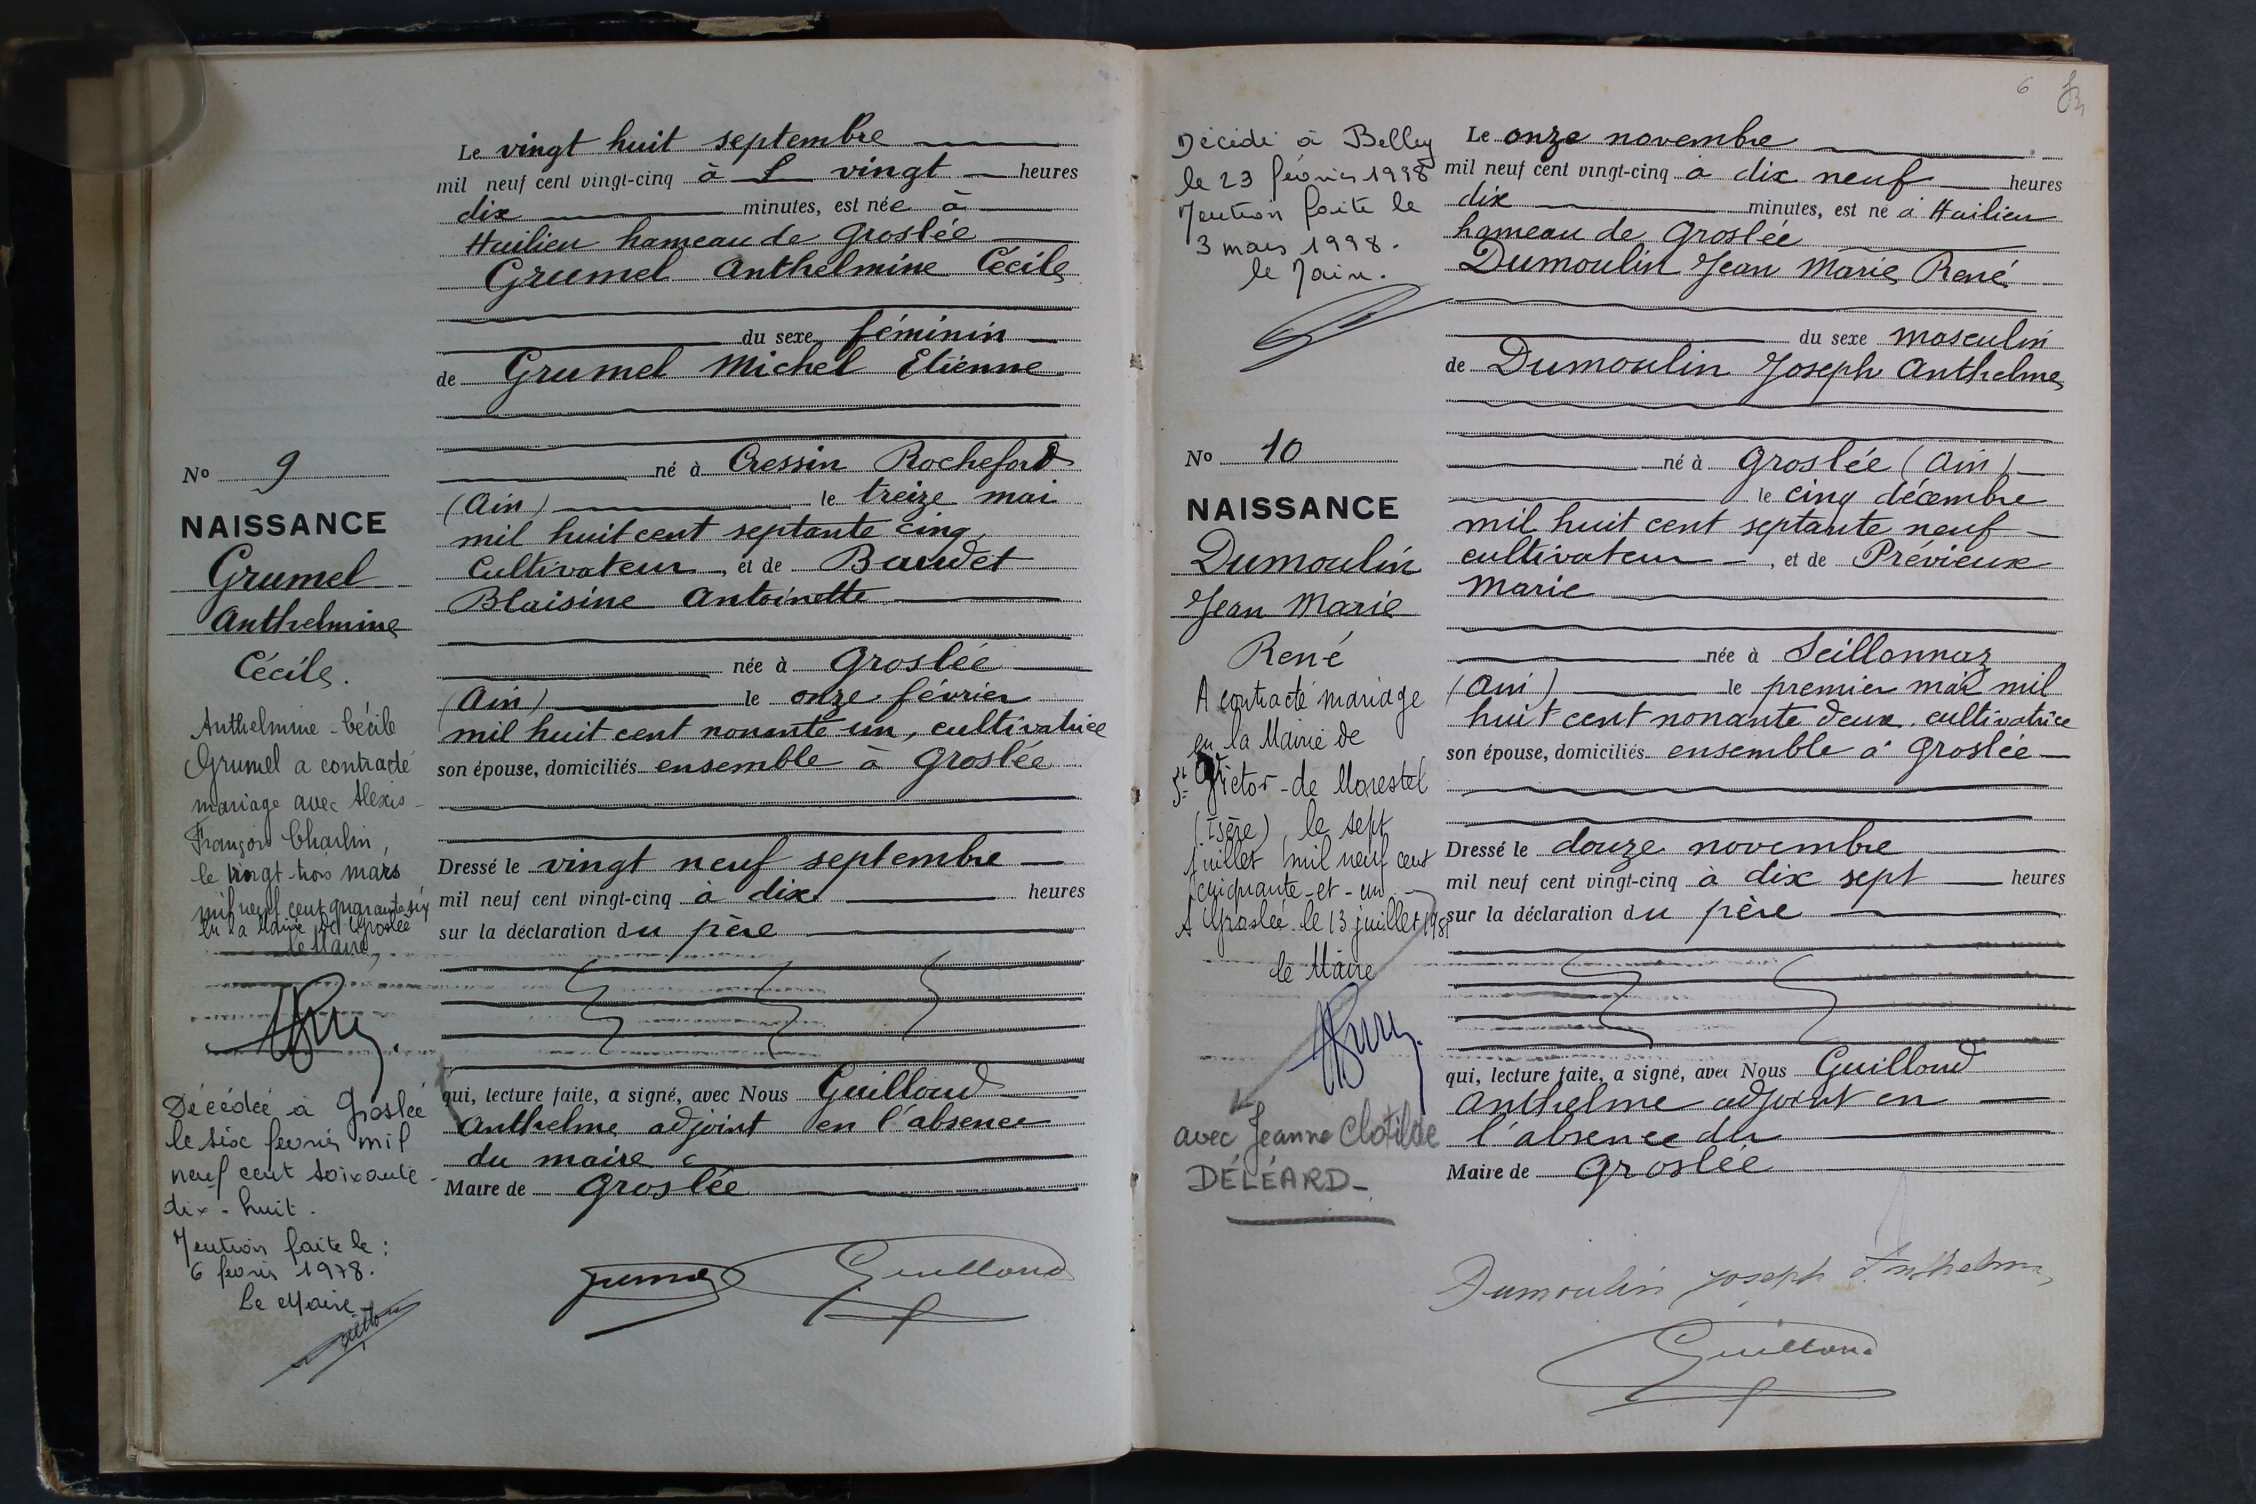 Le vingt huit septembre
mil neuf cent vingt-cinq à vingt heures
dix minutes, est née à
Huilieu hameau de Groslée
Grumel Anthelmine Cécile
du sexe féminin
de Grumel Michel Etienne
né à Cressin Rochefort
(Ain) le treize mai
mil huit cent septante cinq
Cultivateur, et de Baudet
Blaisine Antoinette
née à Groslée
(Ain) le onze février
mil huit cent nonante un, cultivatrice
son épouse, domiciliés ensemble à Groslée
Dressé le vingt neuf septembre
mil neuf cent vingt-cinq à dix heures
sur la déclaration du père
qui, lecture faite, a signé, avec Nous Guilloud
Anthelme adjoint en l'absence
du maire
Maire de Groslée
Grumel Guilloud
No 9
NAISSANCE
Grumel
Anthelmine
Cécile.
Anthelmine-Cécile
Grumel a contracté
mariage avec Alexis-
François Charlin,
le vingt-trois mars
mil neuf cent quarante six
en la Mairie de Groslée
le Maire,
Décédée à Groslée
le six fevrier mil
neuf cent soixante-
dix-huit.
Mention faite le :
6 fevrier 1978.
Le Maire
6
Le onze novembre
mil neuf cent vingt-cinq à dix neuf heures
dix minutes, est né à Huilieu
hameau de Groslée
Dumoulin Jean Marie René
du sexe masculin
de Dumoulin Joseph Anthelme
né à Groslée (Ain)
le cinq décembre
mil huit cent septante neuf
cultivateur, et de Prévieux
Marie
née à Seillonnaz
(Ain) le premier mai mil
huit cent nonante deux, cultivatrice
son épouse, domiciliés ensemble à Groslée
Dressé le douze novembre
mil neuf cent vingt-cinq à dix sept heures
sur la déclaration du père
qui, lecture faite, a signé, avec Nous Guilloud
Anthelme adjoint en
l'absence du
Maire de Groslée
Dumoulin Joseph Anthelme
Guilloud
Décédé à Belley
le 23 février 1998
Mention faite le
3 mars 1998.
le Maire.
No 10
NAISSANCE
Dumoulin
Jean Marie
René
A contracté mariage
en la Mairie de
St Victor-de Morestel
(Isère), le sept
juillet mil neuf cent
cinquante-et-un
A Groslée le 13 juillet 1951
le Maire
avec Jeanne Clotilde
DÉLÉARD